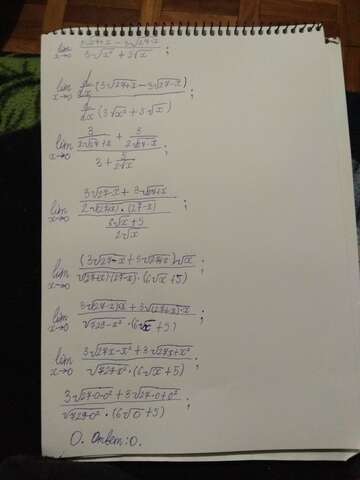 lim x→0 (3√27+x − 3√27-x) / (3√x² + 5√x) ;
lim x→0 d/dx (3√27+x − 3√27-x) / d/dx (3√x² + 5√x) ;
lim x→0 (3/(2√27+x) + 3/(2√27-x)) / (3 + 5/(2√x)) ;
lim x→0 ((3√27-x + 3√27+x) / (2√(27+x)·(27-x))) / ((6√x + 5) / (2√x)) ;
lim x→0 ((3√27-x + 3√27+x)√x) / (√(27+x)(27-x) · (6√x + 5)) ;
lim x→0 (3√(27-x)x + 3√(27+x)·x) / (√729-x² · (6√x + 5)) ;
lim x→0 (3√27x-x² + 3√27x+x²) / (√729-x² · (6√x + 5)) ;
(3√27·0-0² + 3√27·0+0²) / (√729-0² · (6√0 + 5)) ;
0. Ответ: 0.